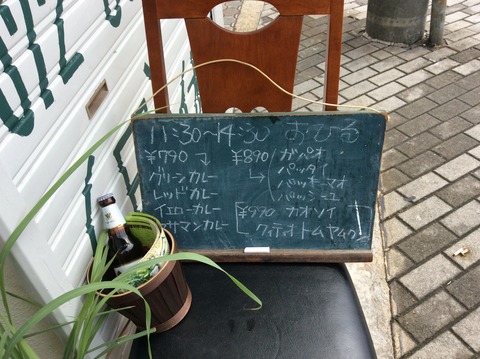 11:30～14:30 おひる
¥790 ↓
グリーンカレー
レッドカレー
イエローカレー
マサマンカレー
¥890 → ガパオ
パッタイ
パッキーマオ
パッシーユ
¥990 カオソイ
クイティオトムヤム